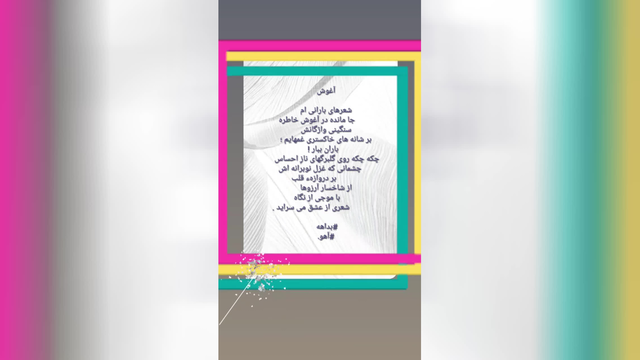 آغوش
شعرهای بارانی ام
جا مانده در آغوش خاطره
سنگینی واژگانش
بر شانه های خاکستری غمهایم ؛
باران ببار !
چکه چکه روی گلبرگهای ناز احساس
چشمانی که غزل نوبرانه اش
بر دروازهء قلب
از شاخسار آرزوها
با موجی از نگاه
شعری از عشق می سراید .
#بداهه
#آهو.